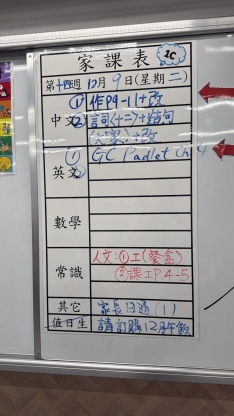 家課表
1C
第十四週 12月9日(星期二)
中文
①作P9-11+改
②詞(十二)+造句
英文
① GC Padlet Ch 4
②
數學
常識
人文:①工(餐盒)
②課工P4-5
其它
家長日通(1)
值日生
請訂購12月午飯